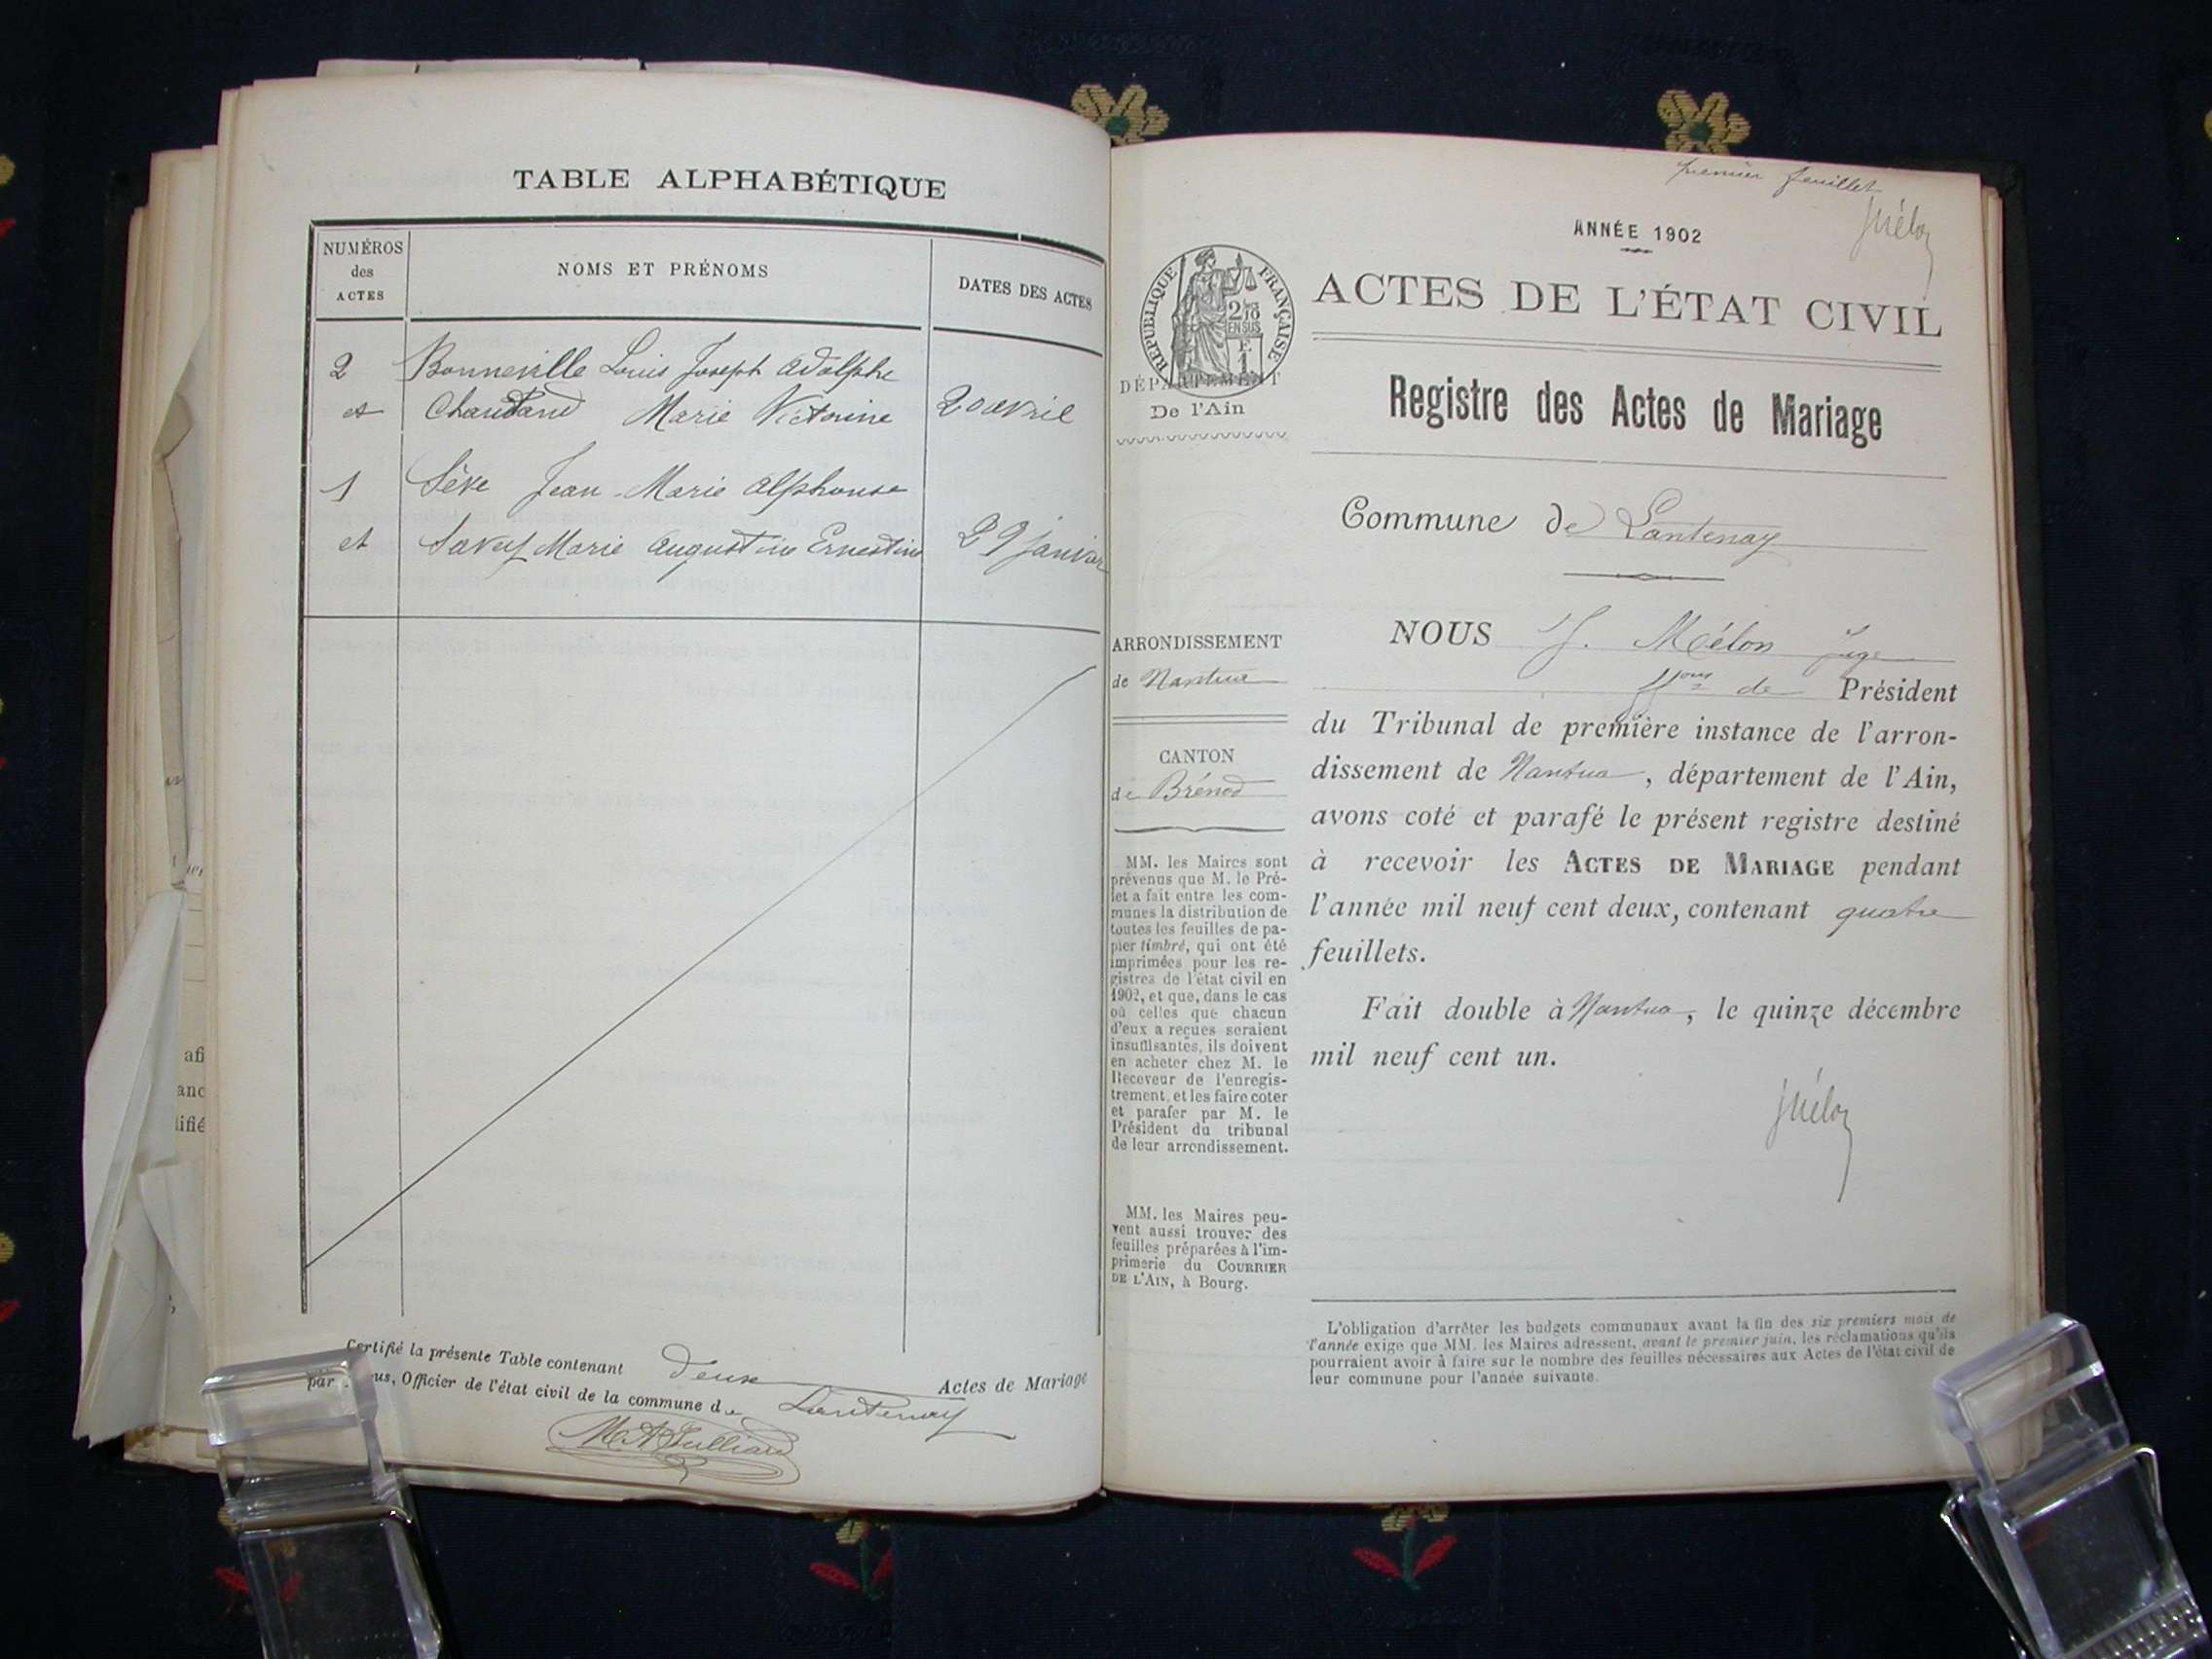 TABLE ALPHABÉTIQUE
NUMÉROS
des
ACTES
NOMS ET PRÉNOMS
DATES DES ACTES
2 Bonneville Louis Joseph Adolphe
et Marie Victorine 20 avril
1 Sève Jean-Marie Alphonse
et Savey Marie Augustine Ernestine 29 janvier
Certifié la présente Table contenant deux Actes de Mariage
par us, Officier de l'état civil de la commune de Lantenay
afi
anc
lifié
premier feuillet
Mélon
ANNÉE 1902
ACTES DE L'ÉTAT CIVIL
RÉPUBLIQUE FRANÇAISE
2/10
EN SUS
F.
1
DÉPARTEMENT
De l'Ain
Registre des Actes de Mariage
Commune de Lantenay
ARRONDISSEMENT
de Nantua
CANTON
de Brénod
MM. les Maires sont
prévenus que M. le Pré-
fet a fait entre les com-
munes la distribution de
toutes les feuilles de pa-
pier timbré, qui ont été
imprimées pour les re-
gistres de l'état civil en
1902, et que, dans le cas
où celles que chacun
d'eux a reçues seraient
insuffisantes, ils doivent
en acheter chez M. le
Receveur de l'enregis-
trement, et les faire coter
et parafer par M. le
Président du tribunal
de leur arrondissement.
MM. les Maires peu-
vent aussi trouver des
feuilles préparées à l'im-
primerie du COURRIER
DE L'AIN, à Bourg.
NOUS J. Mélon Juge
ffons de Président
du Tribunal de première instance de l'arron-
dissement de Nantua, département de l'Ain,
avons coté et parafé le présent registre destiné
à recevoir les ACTES DE MARIAGE pendant
l'année mil neuf cent deux, contenant quatre
feuillets.
Fait double à Nantua, le quinze décembre
mil neuf cent un.
Mélon
L'obligation d'arrêter les budgets communaux avant la fin des six premiers mois de
l'année exige que MM. les Maires adressent, avant le premier juin, les réclamations qu'ils
pourraient avoir à faire sur le nombre des feuilles nécessaires aux Actes de l'état civil de
leur commune pour l'année suivante.